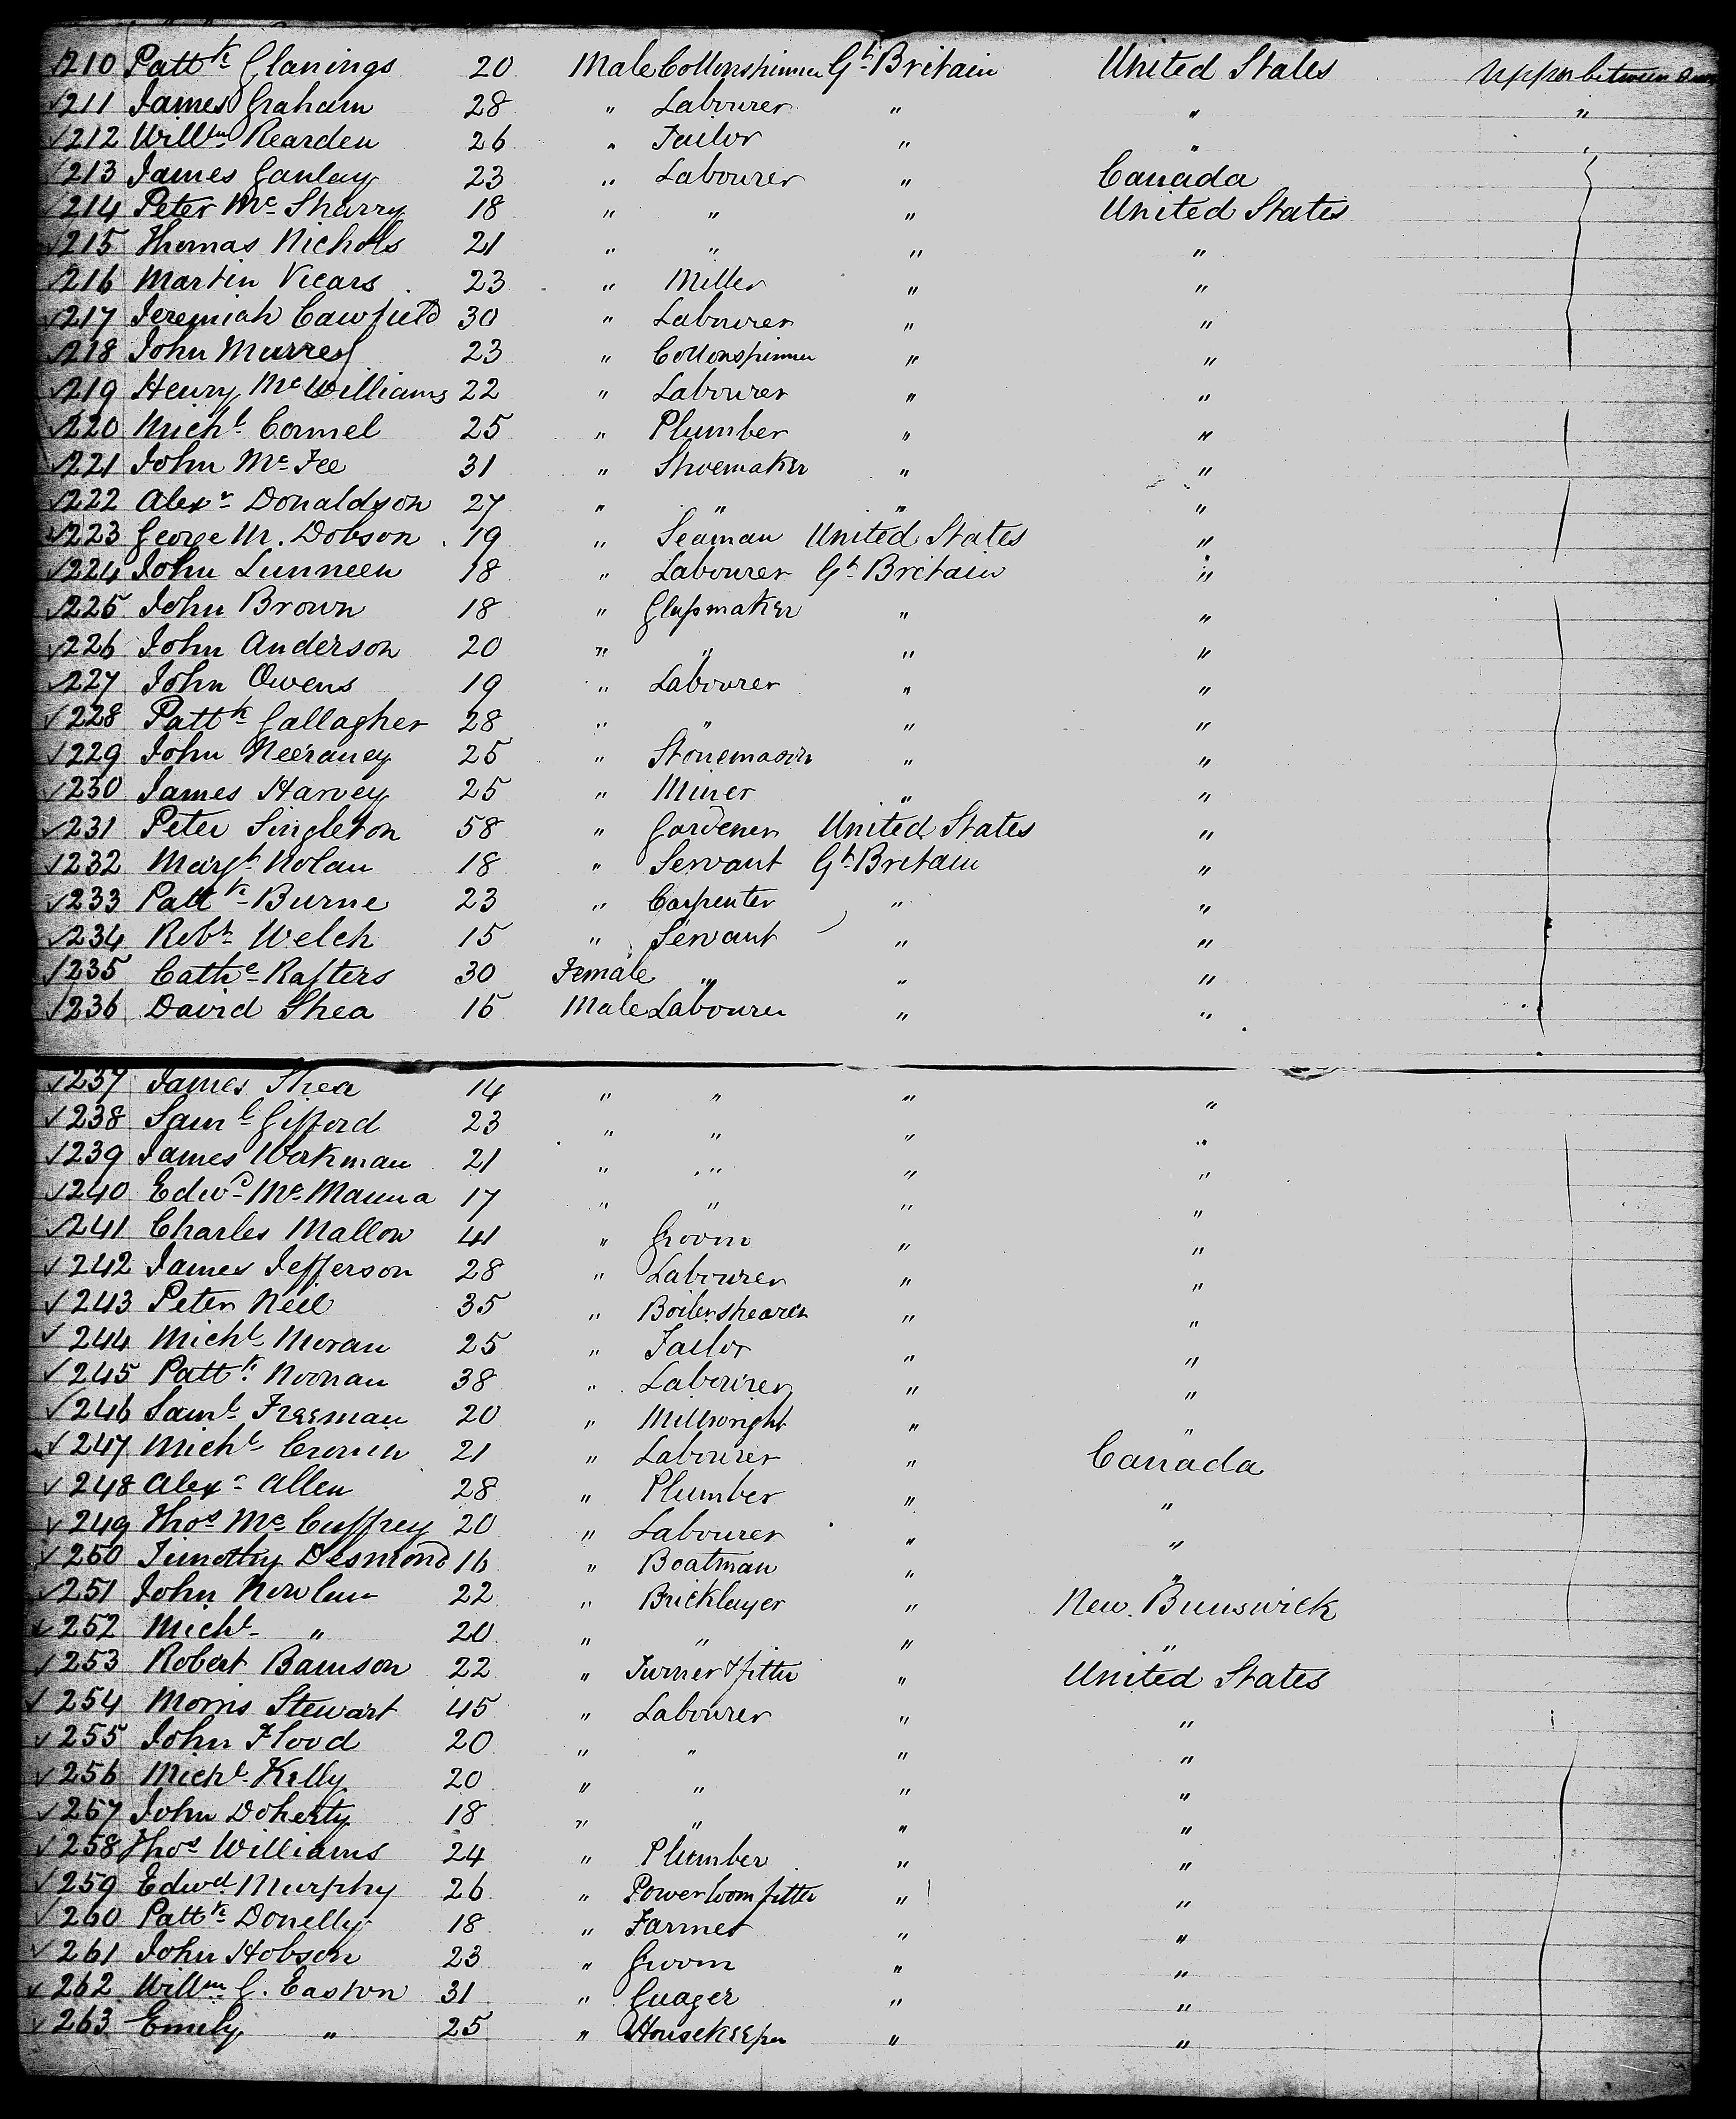 210 Pattk Glanings 20 Male Cottonspinner Gt Britain United States Upper between
211 James Graham 28 " Labourer " " "
212 Willm Rearden 26 " Tailor " " "
213 James Ganlay 23 " Labourer " Canada
214 Peter Mc Sharry 18 " " " United States
215 Thomas Nichols 21 " " " "
216 Martin Vicars 23 " Miller " "
217 Jeremiah Cawfield 30 " Labourer " "
218 John Murrey 23 " Cottonspinner " "
219 Henry Mc Williams 22 " Labourer " "
220 Michl Cormel 25 " Plumber " "
221 John Mc Fee 31 " Shoemaker " "
222 Alexr Donaldson 27 " " " "
223 George M. Dobson 19 " Seaman United States "
224 John Lunneen 18 " Labourer Gt Britain "
225 John Brown 18 " Glassmaker " "
226 John Anderson 20 " " " "
227 John Owens 19 " Labourer " "
228 Pattk Gallagher 28 " " " "
229 John Neeraney 25 " Stonemason " "
230 James Harvey 25 " Miner " "
231 Peter Singleton 58 " Gardener United States "
232 Margt Nolan 18 " Servant Gt Britain "
233 Pattk Burne 23 " Carpenter " "
234 Robt Welch 15 " Servant " "
235 Cathe Rafters 30 Female " " "
236 David Shea 15 Male Labourer " "
237 James Shea 14 " " " "
238 Saml Gifford 23 " " " "
239 James Workman 21 " " " "
240 Edwd Mc Manna 17 " " " "
241 Charles Mallon 41 " Groom " "
242 James Jefferson 28 " Labourer " "
243 Peter Neil 35 " Boilershearer " "
244 Michl Moran 25 " Tailor " "
245 Pattk Noonan 38 " Labourer " "
246 Saml Freeman 20 " Millwright " "
247 Michl Cronin 21 " Labourer " Canada
248 Alexr Allen 28 " Plumber " "
249 Thos Mc Cuffrey 20 " Labourer " "
250 Timothy Desmond 16 " Boatman " "
251 John Nowlan 22 " Bricklayer " New Brunswick
252 Michl " 20 " " " "
253 Robert Bamson 22 " Turner & fitter " United States
254 Morris Stewart 45 " Labourer " "
255 John Flood 20 " " " "
256 Michl Kelly 20 " " " "
257 John Doherty 18 " " " "
258 Thos Williams 24 " Plumber " "
259 Edwd Murphy 26 " Powerloom fitter " "
260 Pattk Donelly 18 " Farmer " "
261 John Hobson 23 " Groom " "
262 Willm G. Easton 31 " Guager " "
263 Emily " 25 " Housekeeper " "